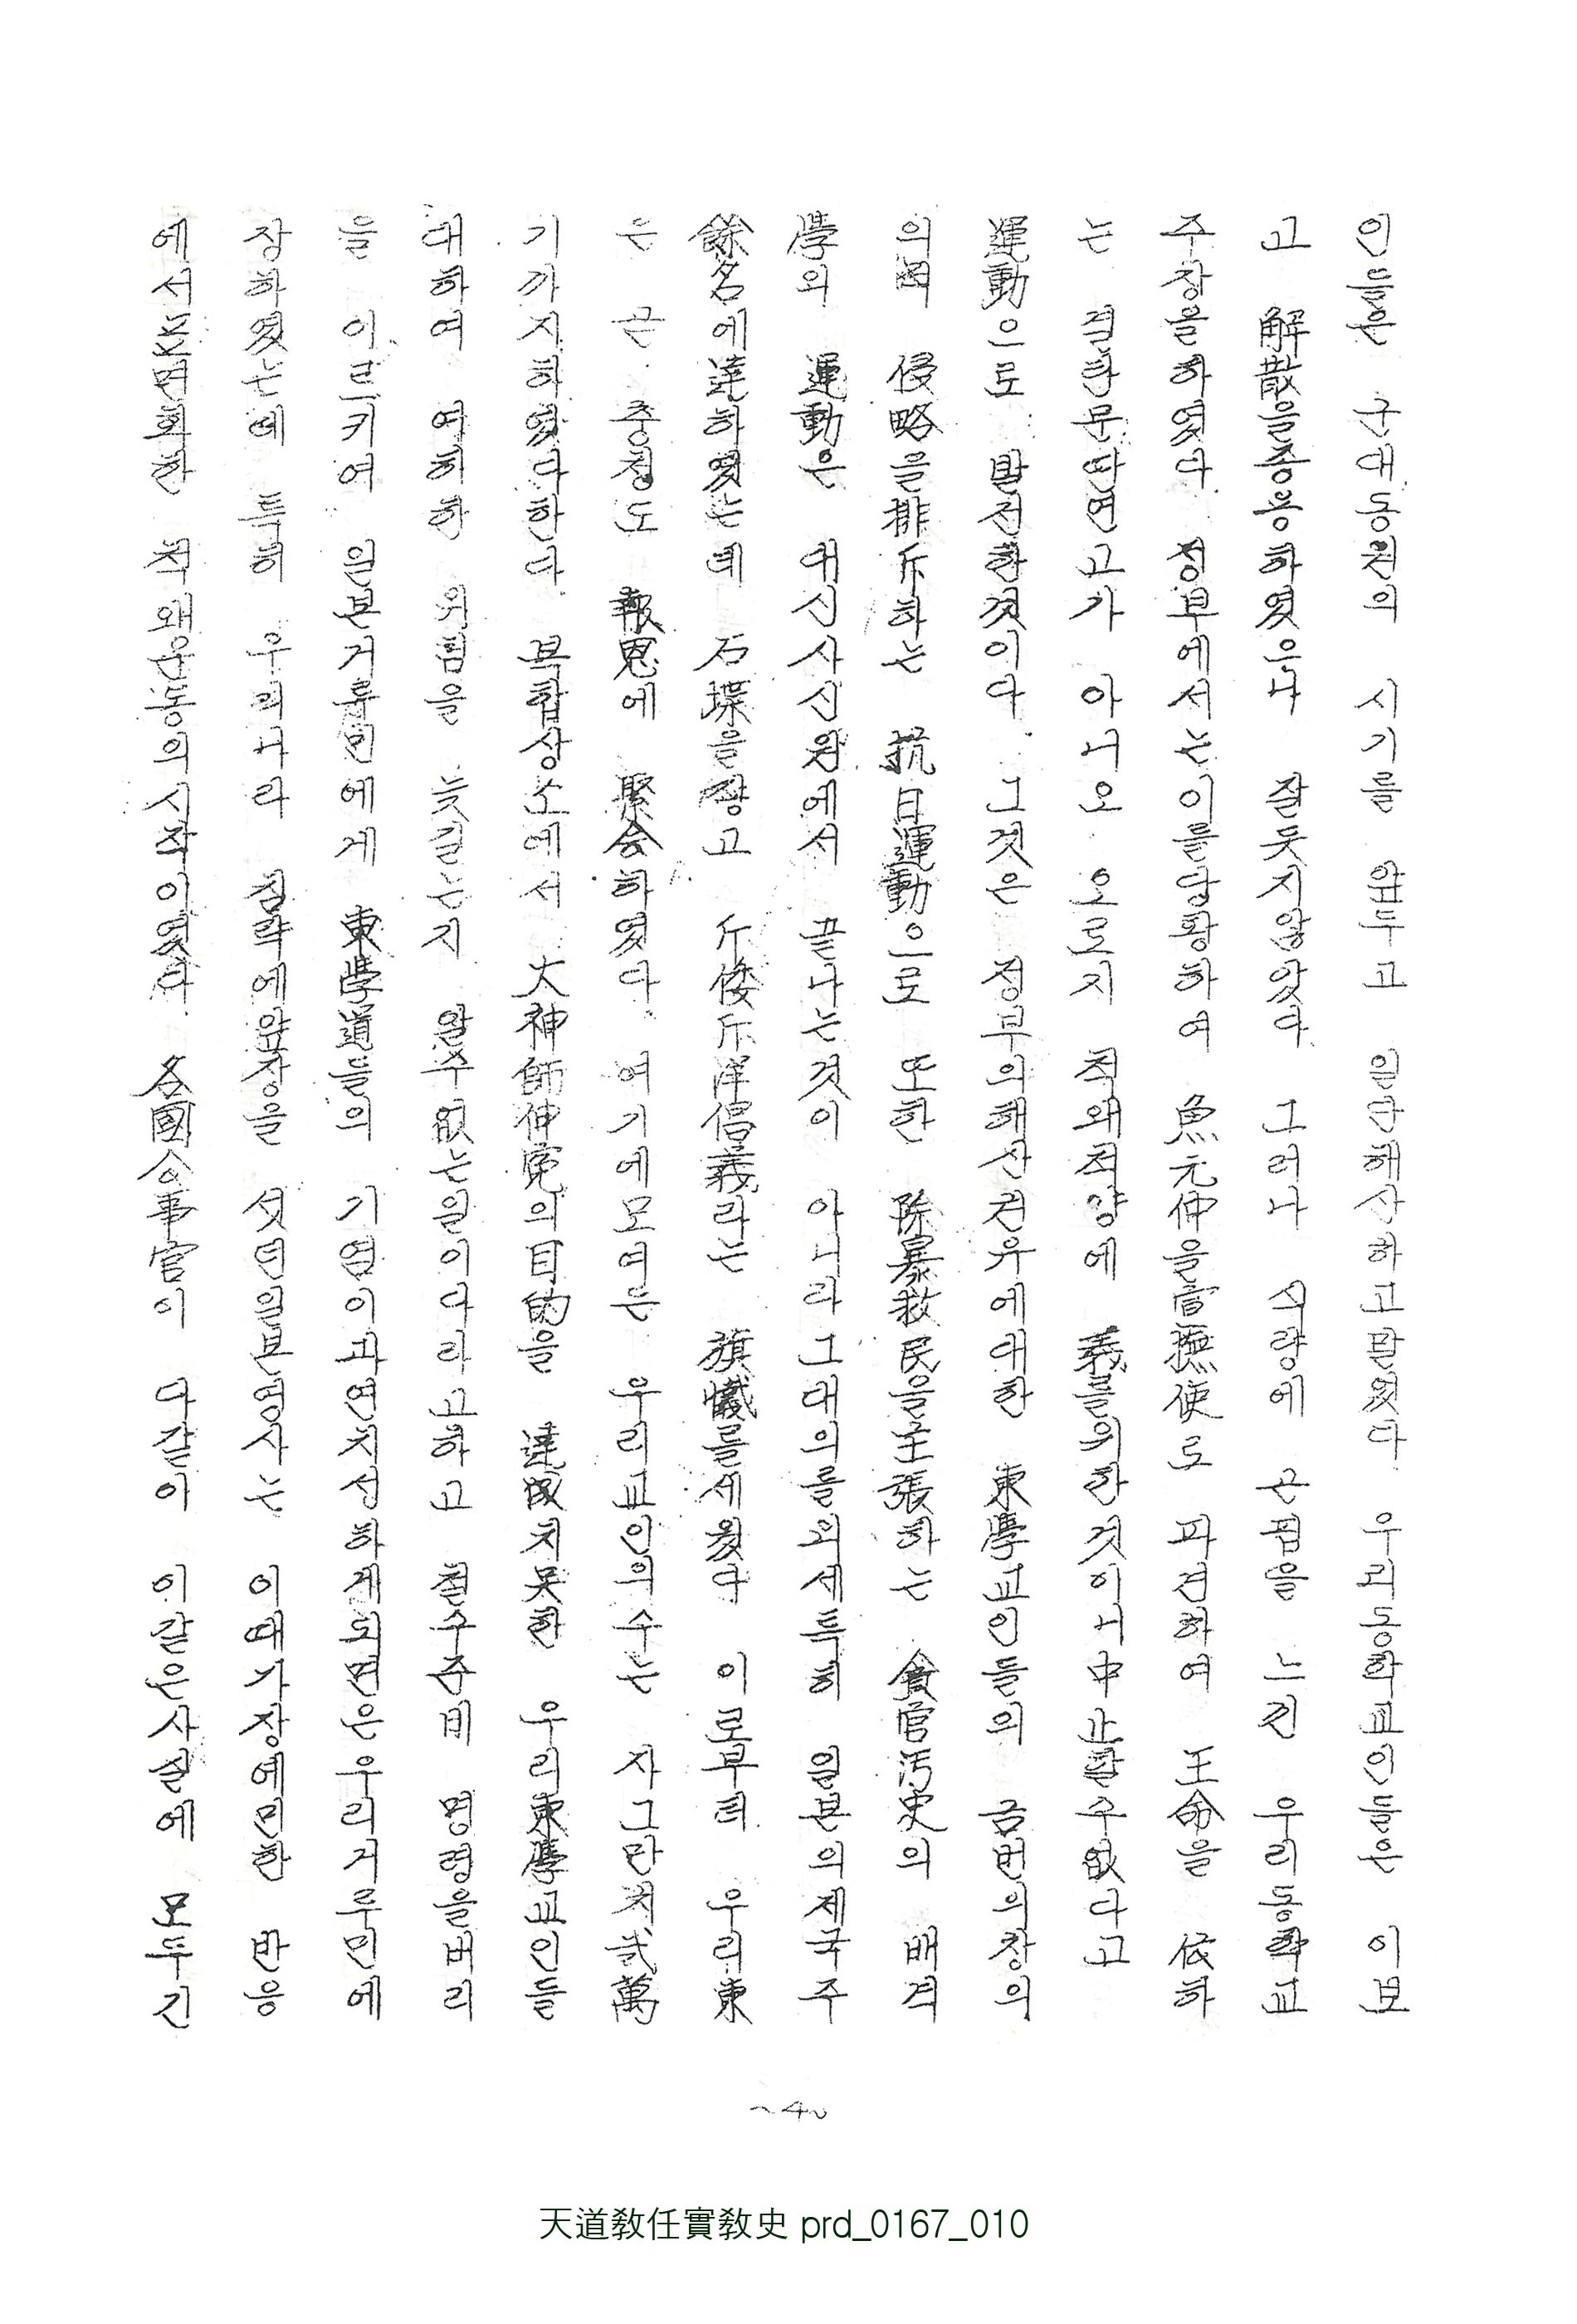 인들은 군대동원의 시기를 앞두고 일단해산하고말었다. 우리동학교인들은 이보
고 解散을종용하였으나 잘듯지않았다. 그러나 식량에 곤핍을 느낀 우리동학교
주장을하였다. 정부에서는이를당황하여 魚元仲을宣撫使로 파견하여 王命을 依하
는 결탁문따연고가 아니오 오로지 척왜척양에 義를위한것이니中止할수없다고
運動으로 발전한것이다. 그것은 정부의해산권유에대한 東學교인들의 금번의창의
의와 侵略을排斥하는 抗日運動으로 또한 除暴救民을主張하는 貪官汚吏의 배격
學의 運動은 대신사신원에서 끝나는것이 아니라그대의를외세특히 일본의제국주
餘名에達하였는데 石堞을쌓고 斥倭斥洋倡義라는 旗幟를세웠다 이로부터 우리東
은 곧 충청도 報恩에 聚会하였다. 여기에모여든 우리교인의수는 자그만치 弐萬
기까지하였다한다. 복합상소에서 大神師伸寃의目的을 達成치못한 우리東學교인들
대하여 여하한 위험을 늦길는지 알수없는일이다라고하고 철수준비 명령을버리
을 이르키여 일본거류민에게 東學道들의 기염이과연치성하게되면은우리거루민에
장하였는데 특히 우리나라 침략에앞장을 섯던일본영사는 이때가장예민한 반응
에서도면회한 척왜운동의시작이였다. 各國令事官이 다같이 이같은사실에 모두긴
~4~
天道敎任實敎史 prd_0167_010